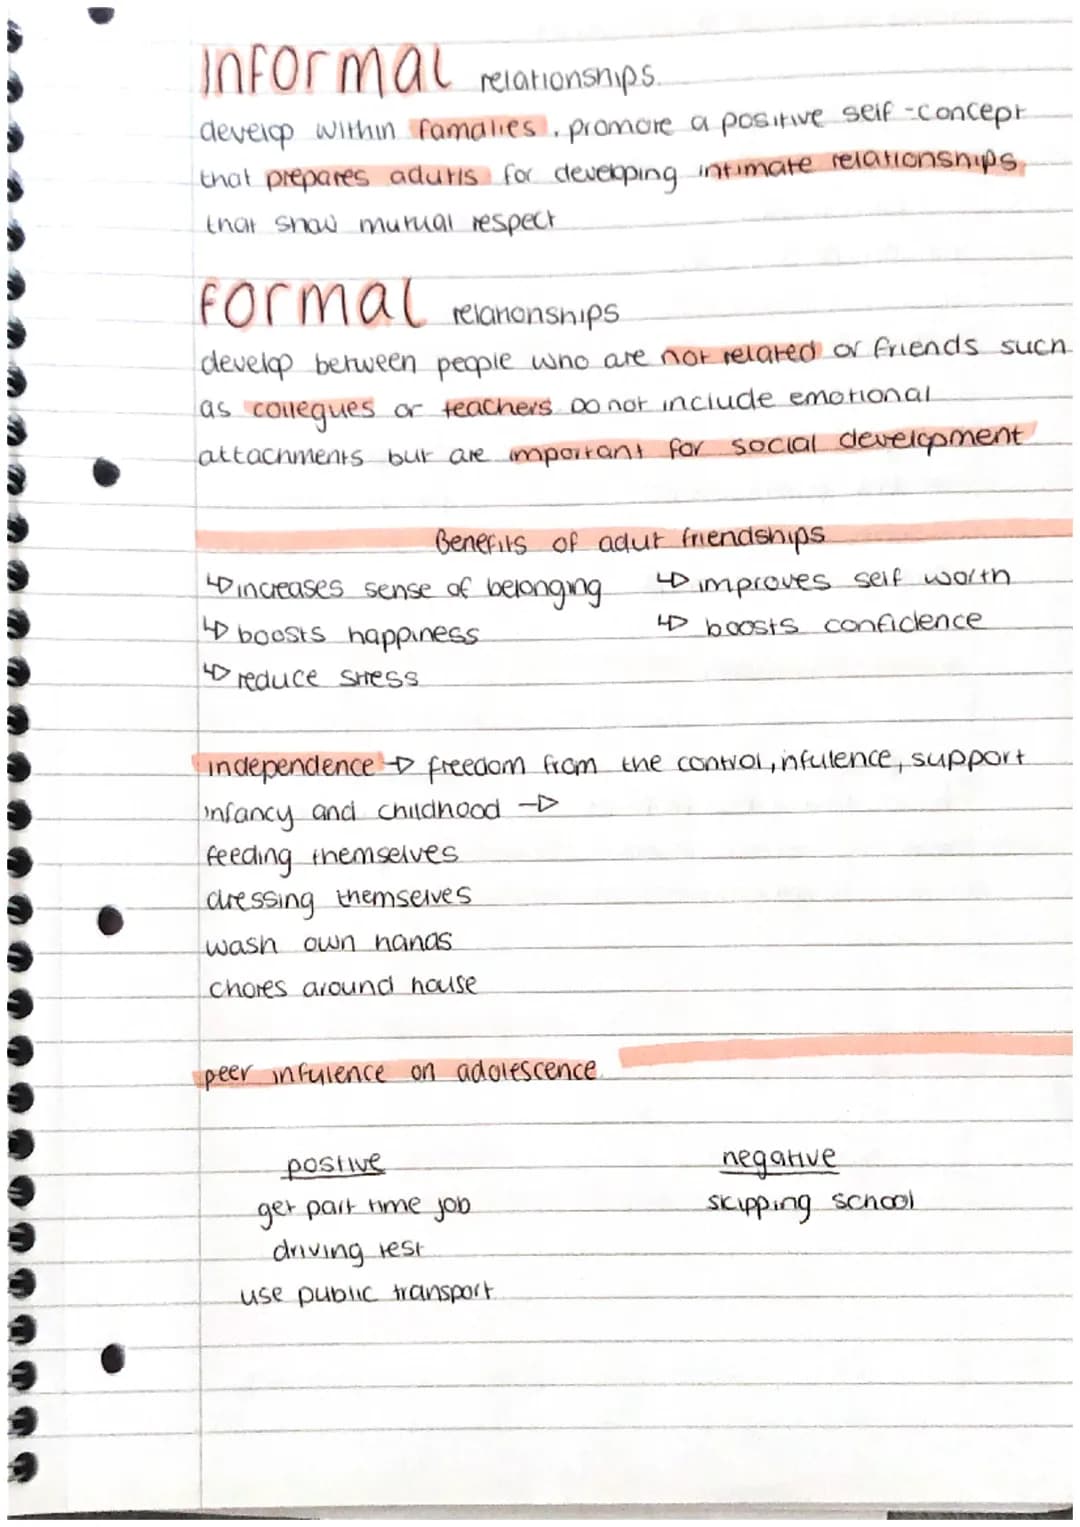 Informal relationships.
develop within famalies, promote a positive self-concept
that prepares adults for developing intimate relationships
that show mutual respect
Formal relationships
develop between people who are not related or friends such
as collegues or teachers. Do not include emotional
attachments but are important for social development
Benefits of adult friendships
↳ increases sense of belonging ↳ improves self worth
↳ boosts happiness ↳ boosts confidence
↳ reduce stress
independence → freedom from the control, infulence, support
infancy and childhood →
feeding themselves
dressing themselves
wash own hands
chores around house
peer infulence on adolescence.
postive negative
get part time job skipping school
driving test
use public transport